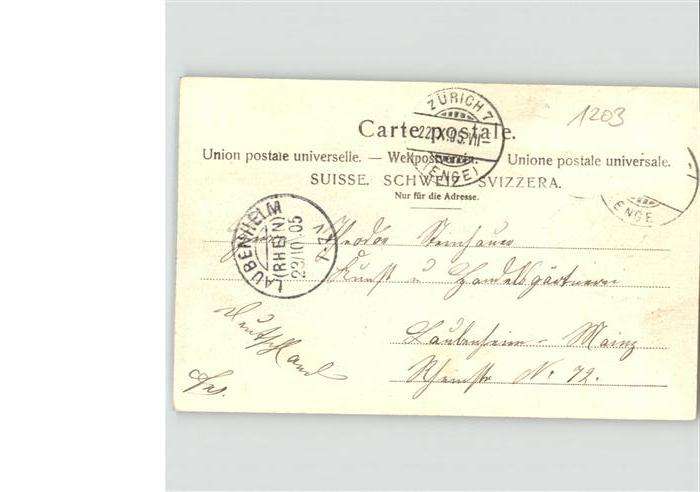 1203
ZÜRICH 7
22.X.05.VII-
(ENGE)
Carte postale.
Union postale universelle. — Weltpostverein. Unione postale universale.
SUISSE. SCHWEIZ. SVIZZERA.
Nur für die Adresse.
-7
ENGE
LAUBENHEIM
(RHEIN)
23/10.05
Theodor Steinhauer
Kunst u Handelsgärtnerei
Laubenheim - Mainz
Rheinstr No. 72.
Deutschland